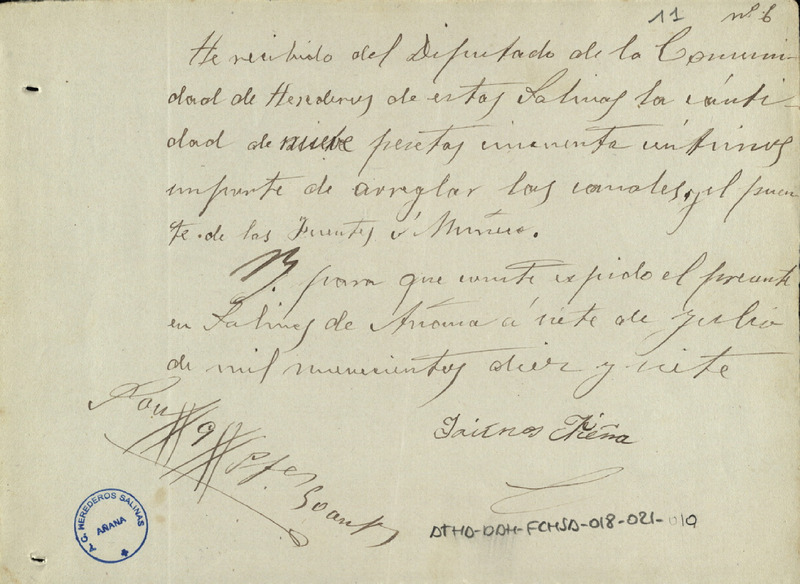 11 nº 6
He recibido del Diputado de la Comuni-
dad de Herederos de estas Salinas la cánti-
dad de nueve pesetas cincuenta céntimos
importe de arreglar los canales, y el puen-
te de las Fuentes é Muñera.
Y para que conste expido el presente
en Salinas de Añana á siete de Julio
de mil nuevecientos diez y siete
Son # 9 # Ptas 50 cents
Peña
A.C. HEREDEROS SALINAS
AÑANA
ATHA-DAH-FCHSA-018-021-010